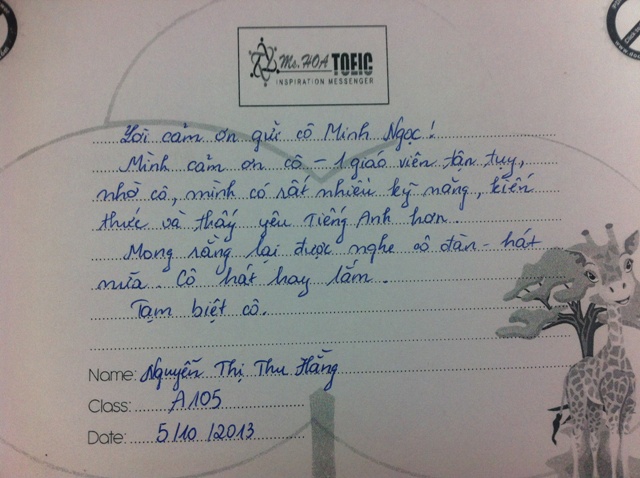 Ms. HOA TOEIC
INSPIRATION MESSENGER
Lời cảm ơn gửi cô Minh Ngọc!
Mình cảm ơn cô - 1 giáo viên tận tụy,
nhờ cô, mình có rất nhiều kỹ năng, kiến
thức và thấy yêu Tiếng Anh hơn.
Mong rằng lại được nghe cô đàn - hát
nữa. Cô hát hay lắm.
Tạm biệt cô.
Name: Nguyễn Thị Thu Hằng
Class: A105
Date: 5/10/2013